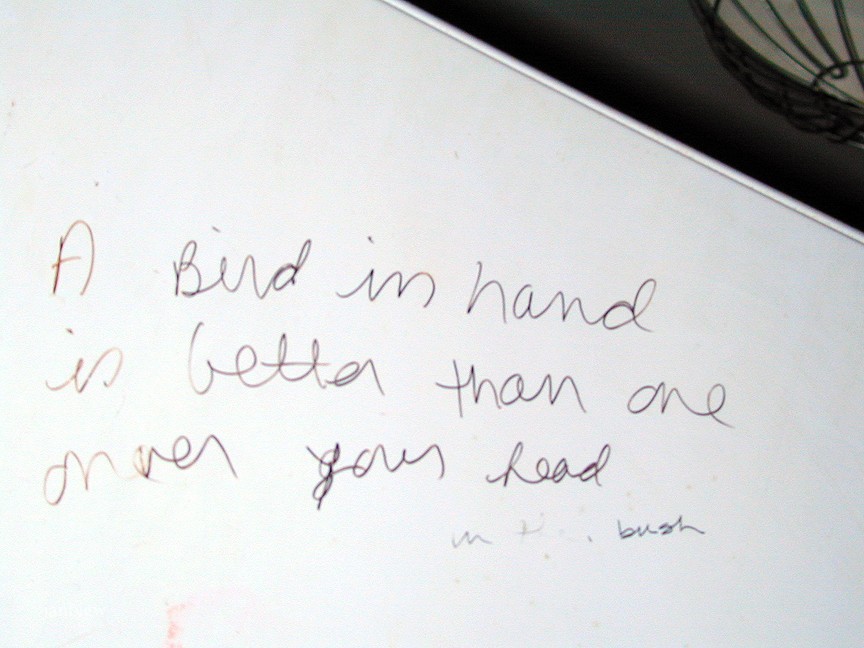 A Bird in hand
is better than one
over your head
in bush